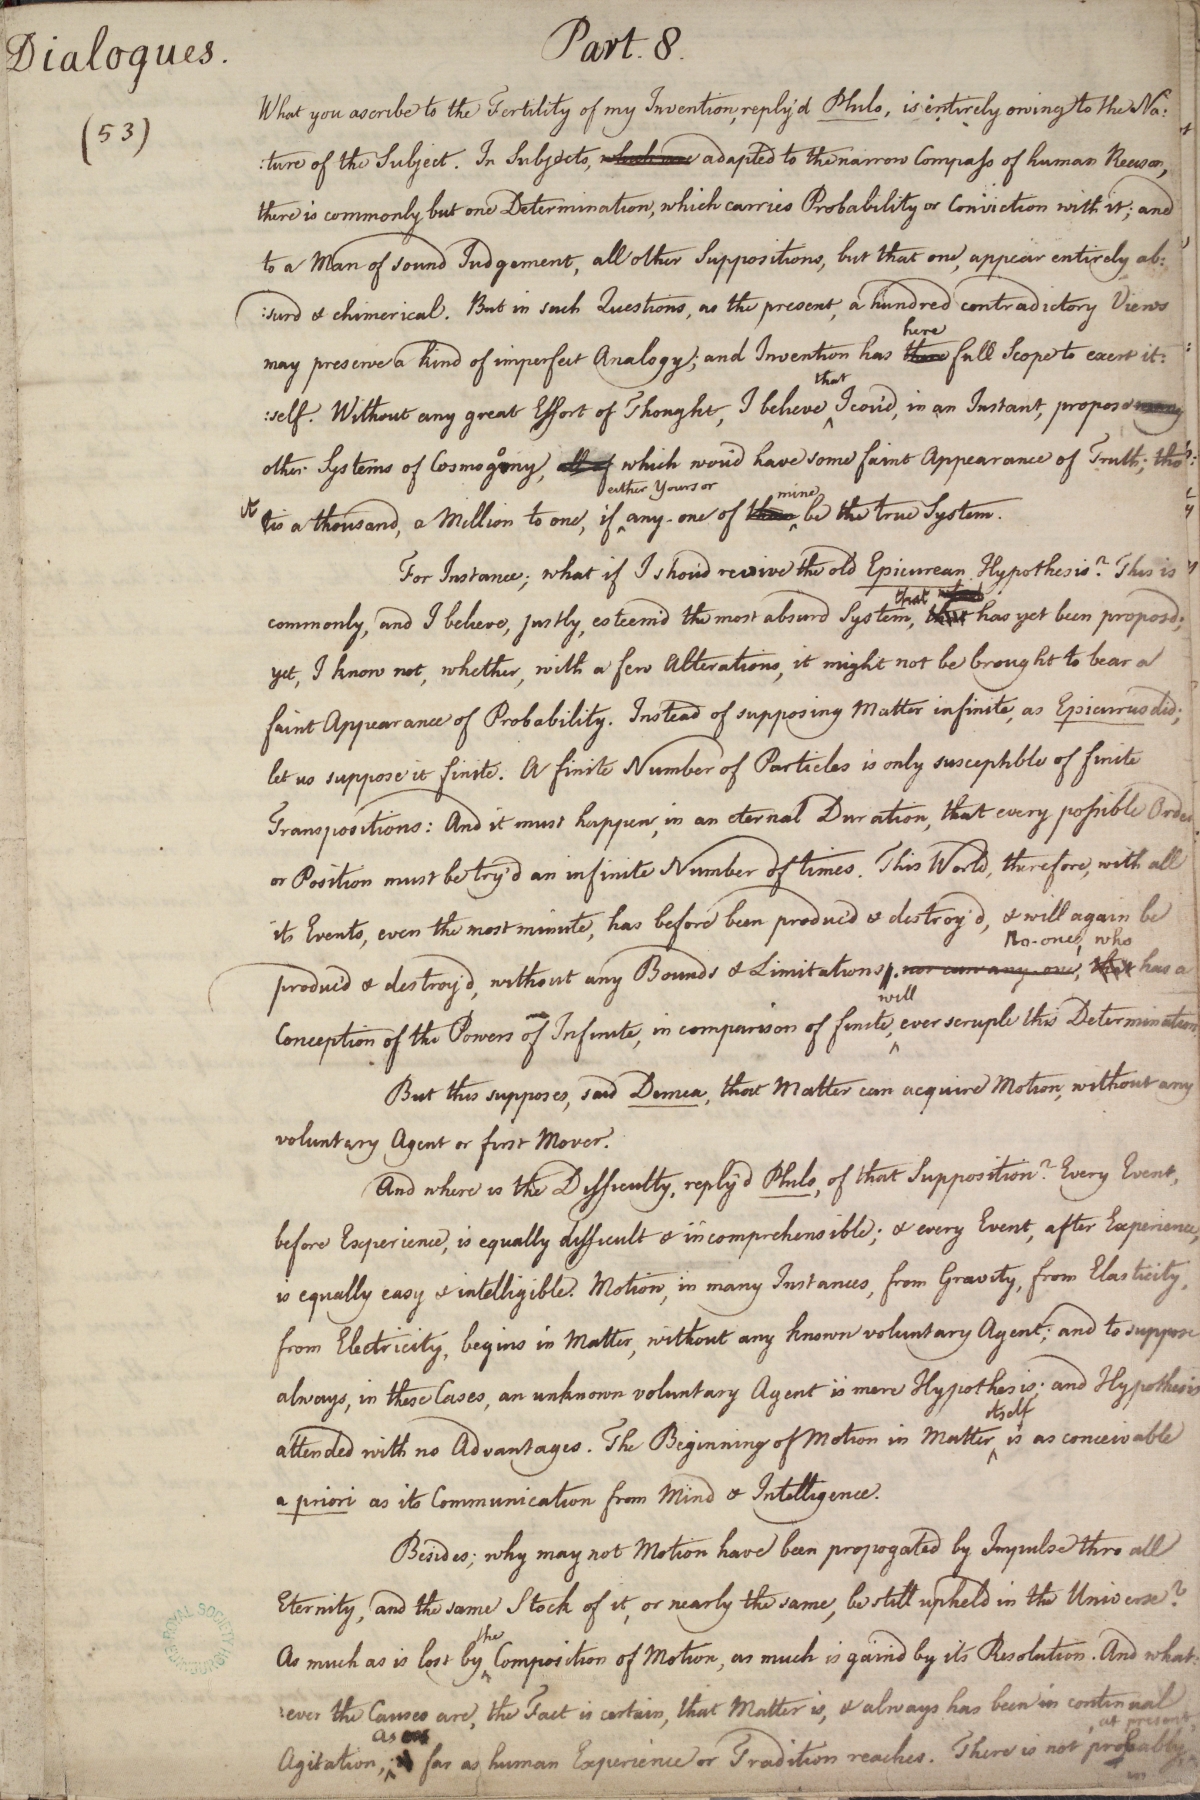 Dialogues.
Part. 8.
(53)
What you ascribe to the Fertility of my Invention, reply'd Philo, is entirely owing to the Na:
:ture of the Subject. In Subjects, which are adapted to the narrow Compass of human Reason,
there is commonly but one Determination, which carries Probability or Conviction with it; and
to a Man of sound Judgement, all other Suppositions, but that one, appear entirely ab:
:surd & chimerical. But in such Questions, as the present, a hundred contradictory Views
here
may preserve a kind of imperfect Analogy; and Invention has there full Scope to exert it:
that
:self. Without any great Effort of Thought, I believe ^ I cou'd, in an Instant, propose many
other Systems of Cosmogony, all of which wou'd have some faint Appearance of Truth; tho
either Yours or mine
it is a thousand, a Million to one, if ^ any-one of them ^ be the true System.
For Instance; what if I shou'd revive the old Epicurean Hypothesis? This is
that
commonly, and I believe, justly, esteem'd the most absurd System, that has yet been propos'd;
yet, I know not, whether, with a few Alterations, it might not be brought to bear a
faint Appearance of Probability. Instead of supposing Matter infinite, as Epicurus did;
let us suppose it finite. A finite Number of Particles is only susceptible of finite
Transpositions: And it must happen, in an eternal Duration, that every possible Order
or Position must be try'd an infinite Number of times. This World, therefore, with all
its Events, even the most minute, has before been produc'd & destroy'd, & will again be
No-one, who
produc'd & destroy'd, without any Bounds & Limitations. nor can any one, that has a
will
Conception of the Powers of Infinite, in comparison of finite, ^ ever scruple this Determination
But this supposes, said Demea, that Matter can acquire Motion, without any
voluntary Agent or first Mover.
And where is the Difficulty, reply'd Philo, of that Supposition? Every Event,
before Experience, is equally difficult & incomprehensible; & every Event, after Experience,
is equally easy & intelligible. Motion, in many Instances, from Gravity, from Elasticity,
from Electricity, begins in Matter, without any known voluntary Agent; and to suppose
always, in these Cases, an unknown voluntary Agent is mere Hypothesis; and Hypothesis
itself
attended with no Advantages. The Beginning of Motion in Matter ^ is as conceivable
a priori as its Communication from Mind & Intelligence.
Besides; why may not Motion have been propogated by Impulse thro all
Eternity, and the same Stock of it, or nearly the same, be still upheld in the Universe?
the
As much as is lost by ^ Composition of Motion, as much is gain'd by its Resolution. And what:
:ever the Causes are, the Fact is certain, that Matter is, & always has been in continual
as
at present,
Agitation, ^ far as human Experience or Tradition reaches. There is not probably
in